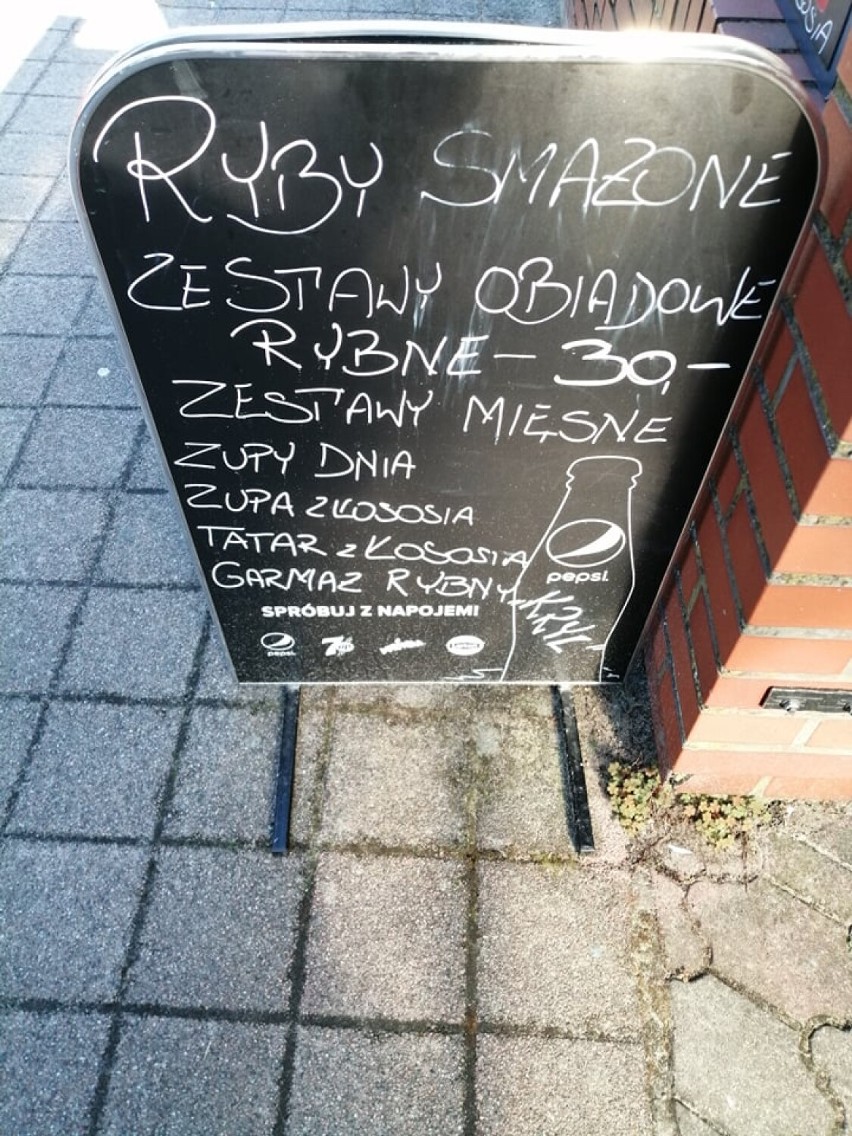 RYBY SMAŻONE
ZESTAWY OBIADOWE
RYBNE – 30,–
ZESTAWY MIĘSNE
ZUPY DNIA
ZUPA Z ŁOSOSIA
TATAR Z ŁOSOSIA
GARMAŻ RYBNY
pepsi
SPRÓBUJ Z NAPOJEM!
pepsi 7up